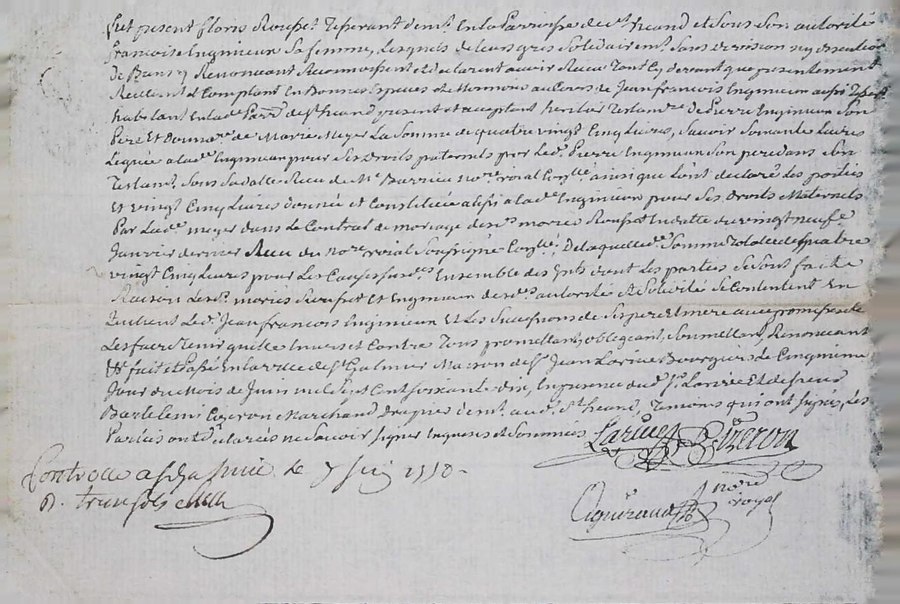 fut present fleury Rouset Tisserant demt. En la Parroisse de st. heand et sous son autorité
francoise Engimieux sa femme, Lesquels de leurs grés solidairemt. sans division ny discution
de Biens y Renoncant Reconnoissent et declarent avoir Receu Tant Cy devant que presentement
Reellemt. & Comptant En Bonnes Especes et Monnoye au Cours de Jean francois Engimieux aussy Tisser
habitant En lad. Parre. de st. heand present et acceptant heritier Testamre. de Pierre Engimieux son
Pere Et Donnatre. de Marie Meyer La somme de quatre vingt Cinq Livres, scavoir soixante Livres
Leguée a lade. Engimieux pour ses droits paternels par led. Pierre Engimieux son pere dans son
Testamt. sous sa datte Receu de Me. Barrieu nore. royal ainsi que l'ont declaré Les parties
Et vingt Cinq Livres donnée et Constituée aussi a lade. Engimieux pour ses Droits Maternels
Par Lade. meyer dans le Contrat de mariage desd. mariés Rouset En datte du vingt neufe.
Janvier dernier Receu du nore. roial soussigné De laquelle de. somme totalle de quatre
vingt Cinq Livres pour Les Causes susd. Ensemble des Ints. dont Les parties se sont faite
Raison Lesd. mariés Rouset Et Engimieux desd. autorité et solidité se Contentent En
Quittent Led. Jean francois Engimieux Et Les successions de ses pere Et mere avec promesse de
Les faire tenir quitte Envers et Contre Tous promettant, obligeant, soumettant, Renoncant
fait et Passé En la ville de st. Galmier Maison de sr. Jean Larive Bourgeois Le Cinquieme
Jour du Mois de Juin mil sept Cent soixante dix, En presence dud. sr. Larive Et de sieur
Barlelemi Cizeron Marchand drapier demt. aud. st. heand, Temoins qui ont signés, Les
Parties ont declarés ne scavoir signer Enquises et sommées
Larive Cizeron
Controllé a st. le 7 Juin 1770.
R. treuf sols
nore. royal